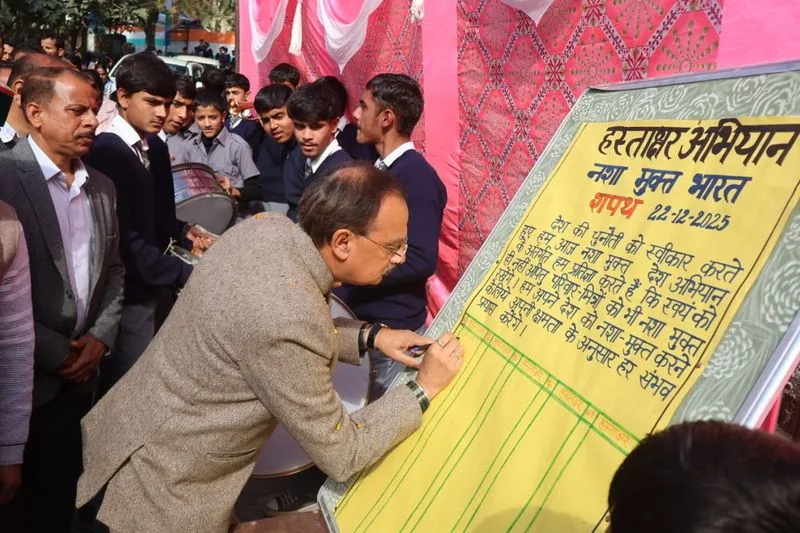 हस्ताक्षर अभियान
नशा मुक्त भारत
शपथ 22-12-2025
देश की चुनौती को स्वीकार करते
हुए हम आज नशा मुक्त देश अभियान
के अंतर्गत हम प्रतिज्ञा करते हैं कि स्वयं को
ही नहीं अपितु परिवार-मित्रों को भी नशा मुक्त
रखेंगे। हम अपने देश को नशा-मुक्त करने
केलिये अपनी क्षमता के अनुसार हर संभव
प्रयास करेंगे।